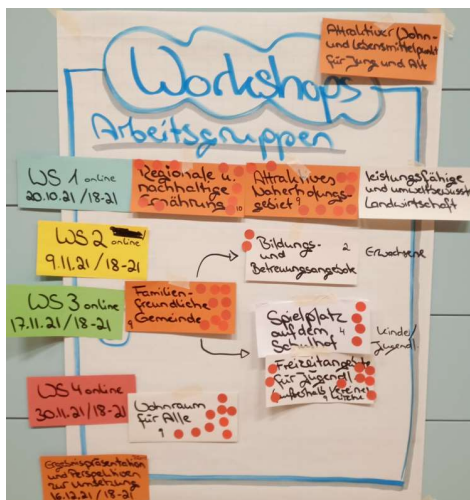 Attraktiver Wohn-
und Lebensmittelpunkt
für Jung und Alt
Workshops
Arbeitsgruppen
WS 1 online
20.10.21/18-21
Regionale u.
nachhaltige
Ernährung
10
Attraktives
Naherholungs-
gebiet
9
leistungsfähige
und umweltbewusste
Landwirtschaft
WS 2
online
9.11.21/18-21
Bildungs-
und
Betreuungsangebote
2
Erwachsene
WS 3 online
17.11.21/18-21
Familien-
freundliche
Gemeinde
9
Spielplatz
auf dem
Schulhof
4
Kinder/
Jugendl.
Freizeitangebote
für Jugendl.
außerhalb Vereine
u. Kirche
9
WS 4 online
30.11.21/18-21
Wohnraum
für Alle
9
Ergebnispräsentation
und Perspektiven
zur Umsetzung
16.12.21/18-21